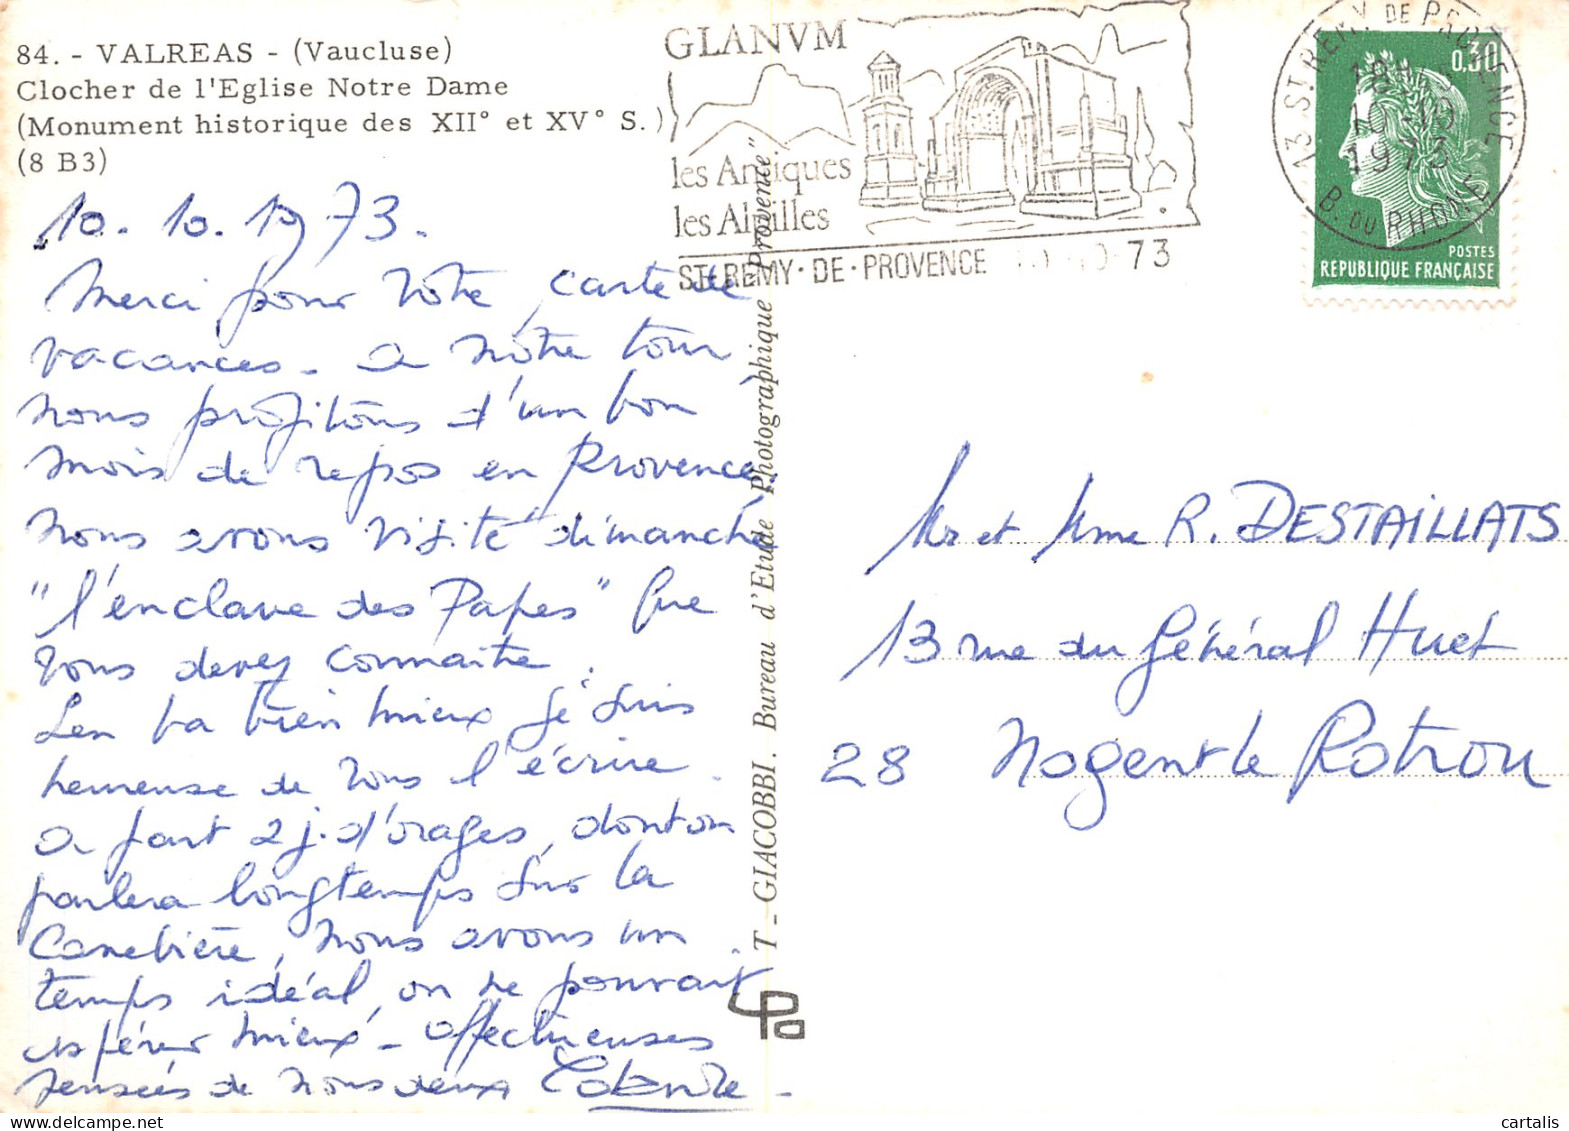 84. - VALREAS - (Vaucluse)
Clocher de l'Eglise Notre Dame
(Monument historique des XII° et XV° S.)
(8 B3)
GLANVM
les Antiques
les Alpilles
ST-REMY-DE-PROVENCE 10-10-73
13 ST REMY DE PROVENCE
18H
10-10
1973
B. DU RHONE
0,30
POSTES
REPUBLIQUE FRANÇAISE
10. 10. 1973.
Merci pour votre carte de
vacances. a notre tour
nous profitons d'un bon
mois de repos en Provence,
nous avons visité dimanche
"l'enclave des Papes" que
vous devez connaitre.
Len va bien mieux je suis
heureuse de vous l'écrire.
a part 2 j. d'orages, dont on
parlera longtemps sur la
Canebière, nous avons un
temps idéal, on ne pouvait
espérer mieux - affectueuses
pensées de nous deux
T - GIACOBBI. Bureau d'Etude Photographique "Provence"
Mr et Mme R. DESTAILLATS
13 rue du Général Huet
28 Nogent le Rotrou
cartalis